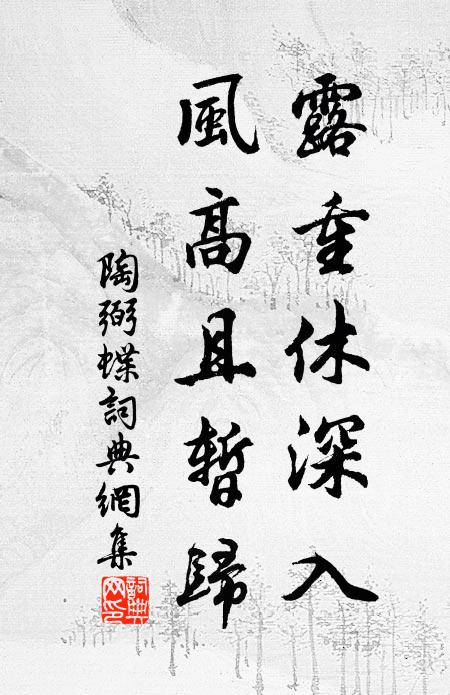 露重休深入
風高且暫歸
陶弼蝶詞典網集
詞典網印